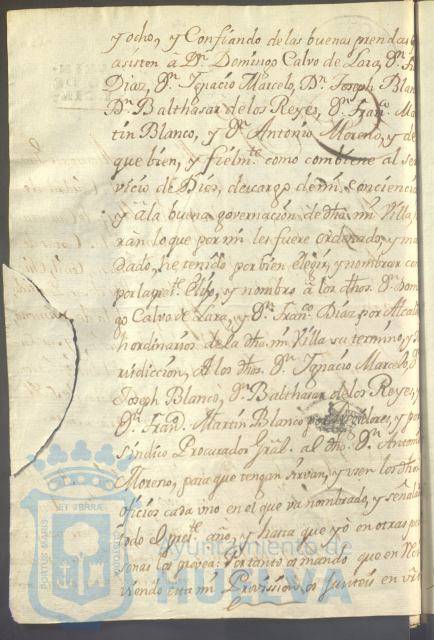 y ocho, y Confiando de las buenas prendas q
asisten â Dn. Domingo Calvo de Lara, Dn. Fr
Diaz, Dn. Ignacio Marcelo, Dn. Joseph Blan
Dn. Balthasar de los Reyes, Dn. Franco. Mar
tin Blanco, y Dn. Antonio Moreno, y de
que bien, y fielmte. como combiene al ser
vicio de Dios, descargo de mi conciencia
y âla buena governacion de dha. mi Villa
ràn lo que por mi les fuere ordenado, y man
dado, he tenido por bien elegir, y nombrar co
por la preste. Elijo, y nombro â los dhos. Dn. Domin
go Calvo de Lara, y Dn. Franco. Diaz por Alcal
hordinarios de la dha. mi Villa su termino, y Ju
risdiccion, A los dhos. Dn. Ignacio Marcelo, Dn.
Joseph Blanco, Dn. Balthasar de los Reyes, y
Dn. Franco. Martin Blanco por Regidores, y por
Sindico Procurador Gràl. al dho. Dn. Antonio
Moreno, para que tengan sirvan, y usen los dhos.
oficios cada uno en el que va nombrado, y señala
todo el preste. año, y hasta que yo en otras per
sonas los provea: Por tanto os mando que en Rec
viendo esta mi Provission, os junteis en
PORTUS MARIS ET TERRAE CUSTODIA
Ayuntamiento de
HUELVA